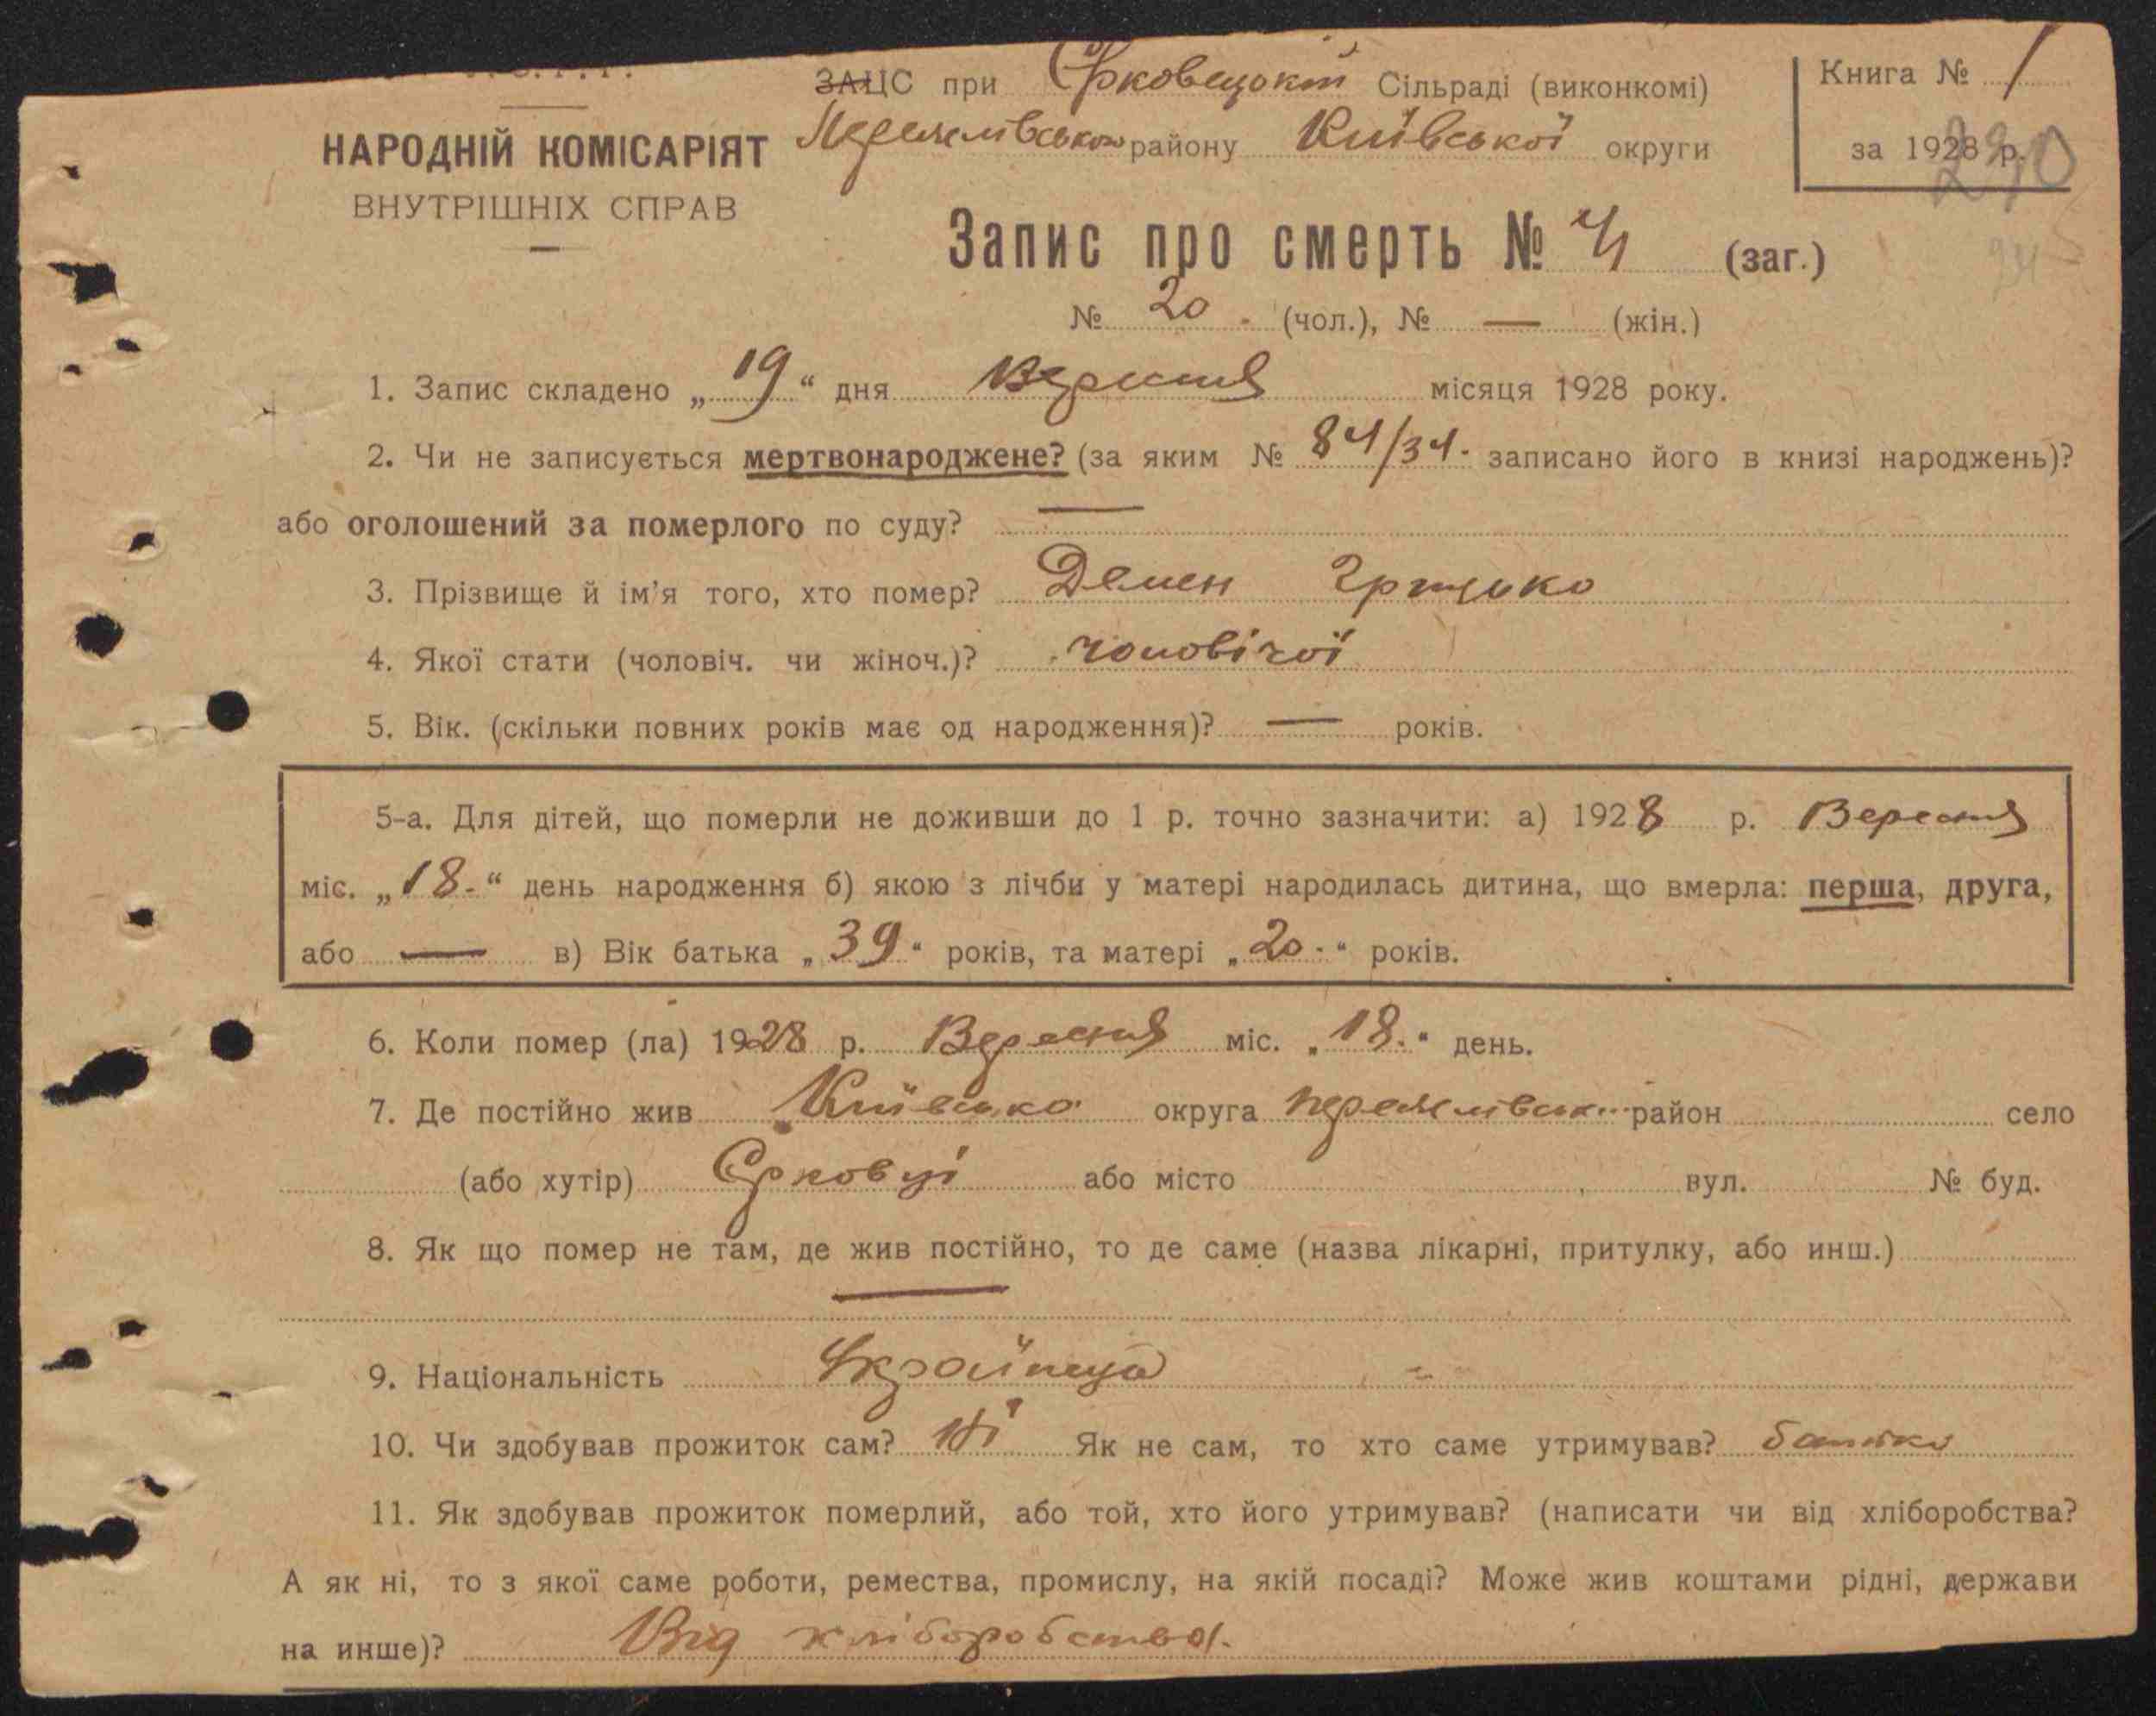 ЗАЦС при Єрковецькій Сільраді (виконкомі)
Книга № 1
НАРОДНІЙ КОМІСАРІЯТ
Переяслівського району Київської округи
за 1928 р.
230
ВНУТРІШНІХ СПРАВ
Запис про смерть № 41 (заг.)
№ 20 (чол.), № — (жін.)
1. Запис складено „19“ дня Вересня місяця 1928 року.
2. Чи не записується мертвонароджене? (за яким № 84/34. записано його в книзі народжень)?
або оголошений за померлого по суду? —
3. Прізвище й ім'я того, хто помер? Демен Грицько
4. Якої стати (чоловіч. чи жіноч.)? чоловічої
5. Вік. (скільки повних років має од народження)? — років.
5-а. Для дітей, що померли не доживши до 1 р. точно зазначити: а) 1928 р. Вересня
міс. „18.“ день народження б) якою з лічби у матері народилась дитина, що вмерла: перша, друга,
або — в) Вік батька „39“ років, та матері „20.“ років.
6. Коли помер (ла) 1928 р. Вересня міс. „18.“ день.
7. Де постійно жив Київська округа Переяслівськ. район село
(або хутір) Єрковці або місто вул. № буд.
8. Як що помер не там, де жив постійно, то де саме (назва лікарні, притулку, або инш.)
—
9. Національність Українця
10. Чи здобував прожиток сам? Ні Як не сам, то хто саме утримував? батько
11. Як здобував прожиток померлий, або той, хто його утримував? (написати чи від хліборобства?
А як ні, то з якої саме роботи, ремества, промислу, на якій посаді? Може жив коштами рідні, держави
на инше)? Від хліборобства.